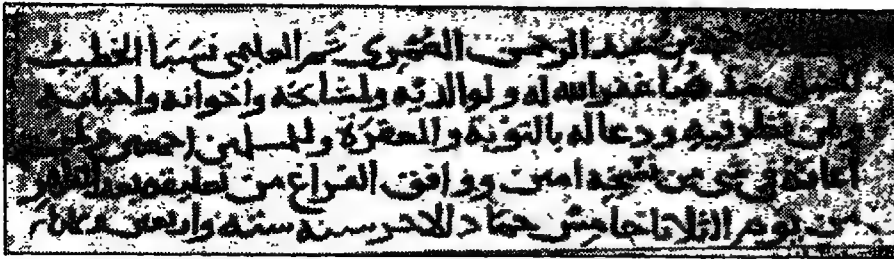 بن عبد الرحمن العمري ثم العليمي نسبا الخطيب
الحنبلي مذهبا غفر الله له ولوالديه ولمشايخه واخوانه واحبابه
ولمن نظر فيه ودعا له بالتوبة والمغفرة وللمسلمين اجمعين
اعانة في شي من نسخه امين ووافق الفراغ من تعليقه بعد الظهر
من يوم الثلاثا خامس جماد الاخر سنة ستة واربعين